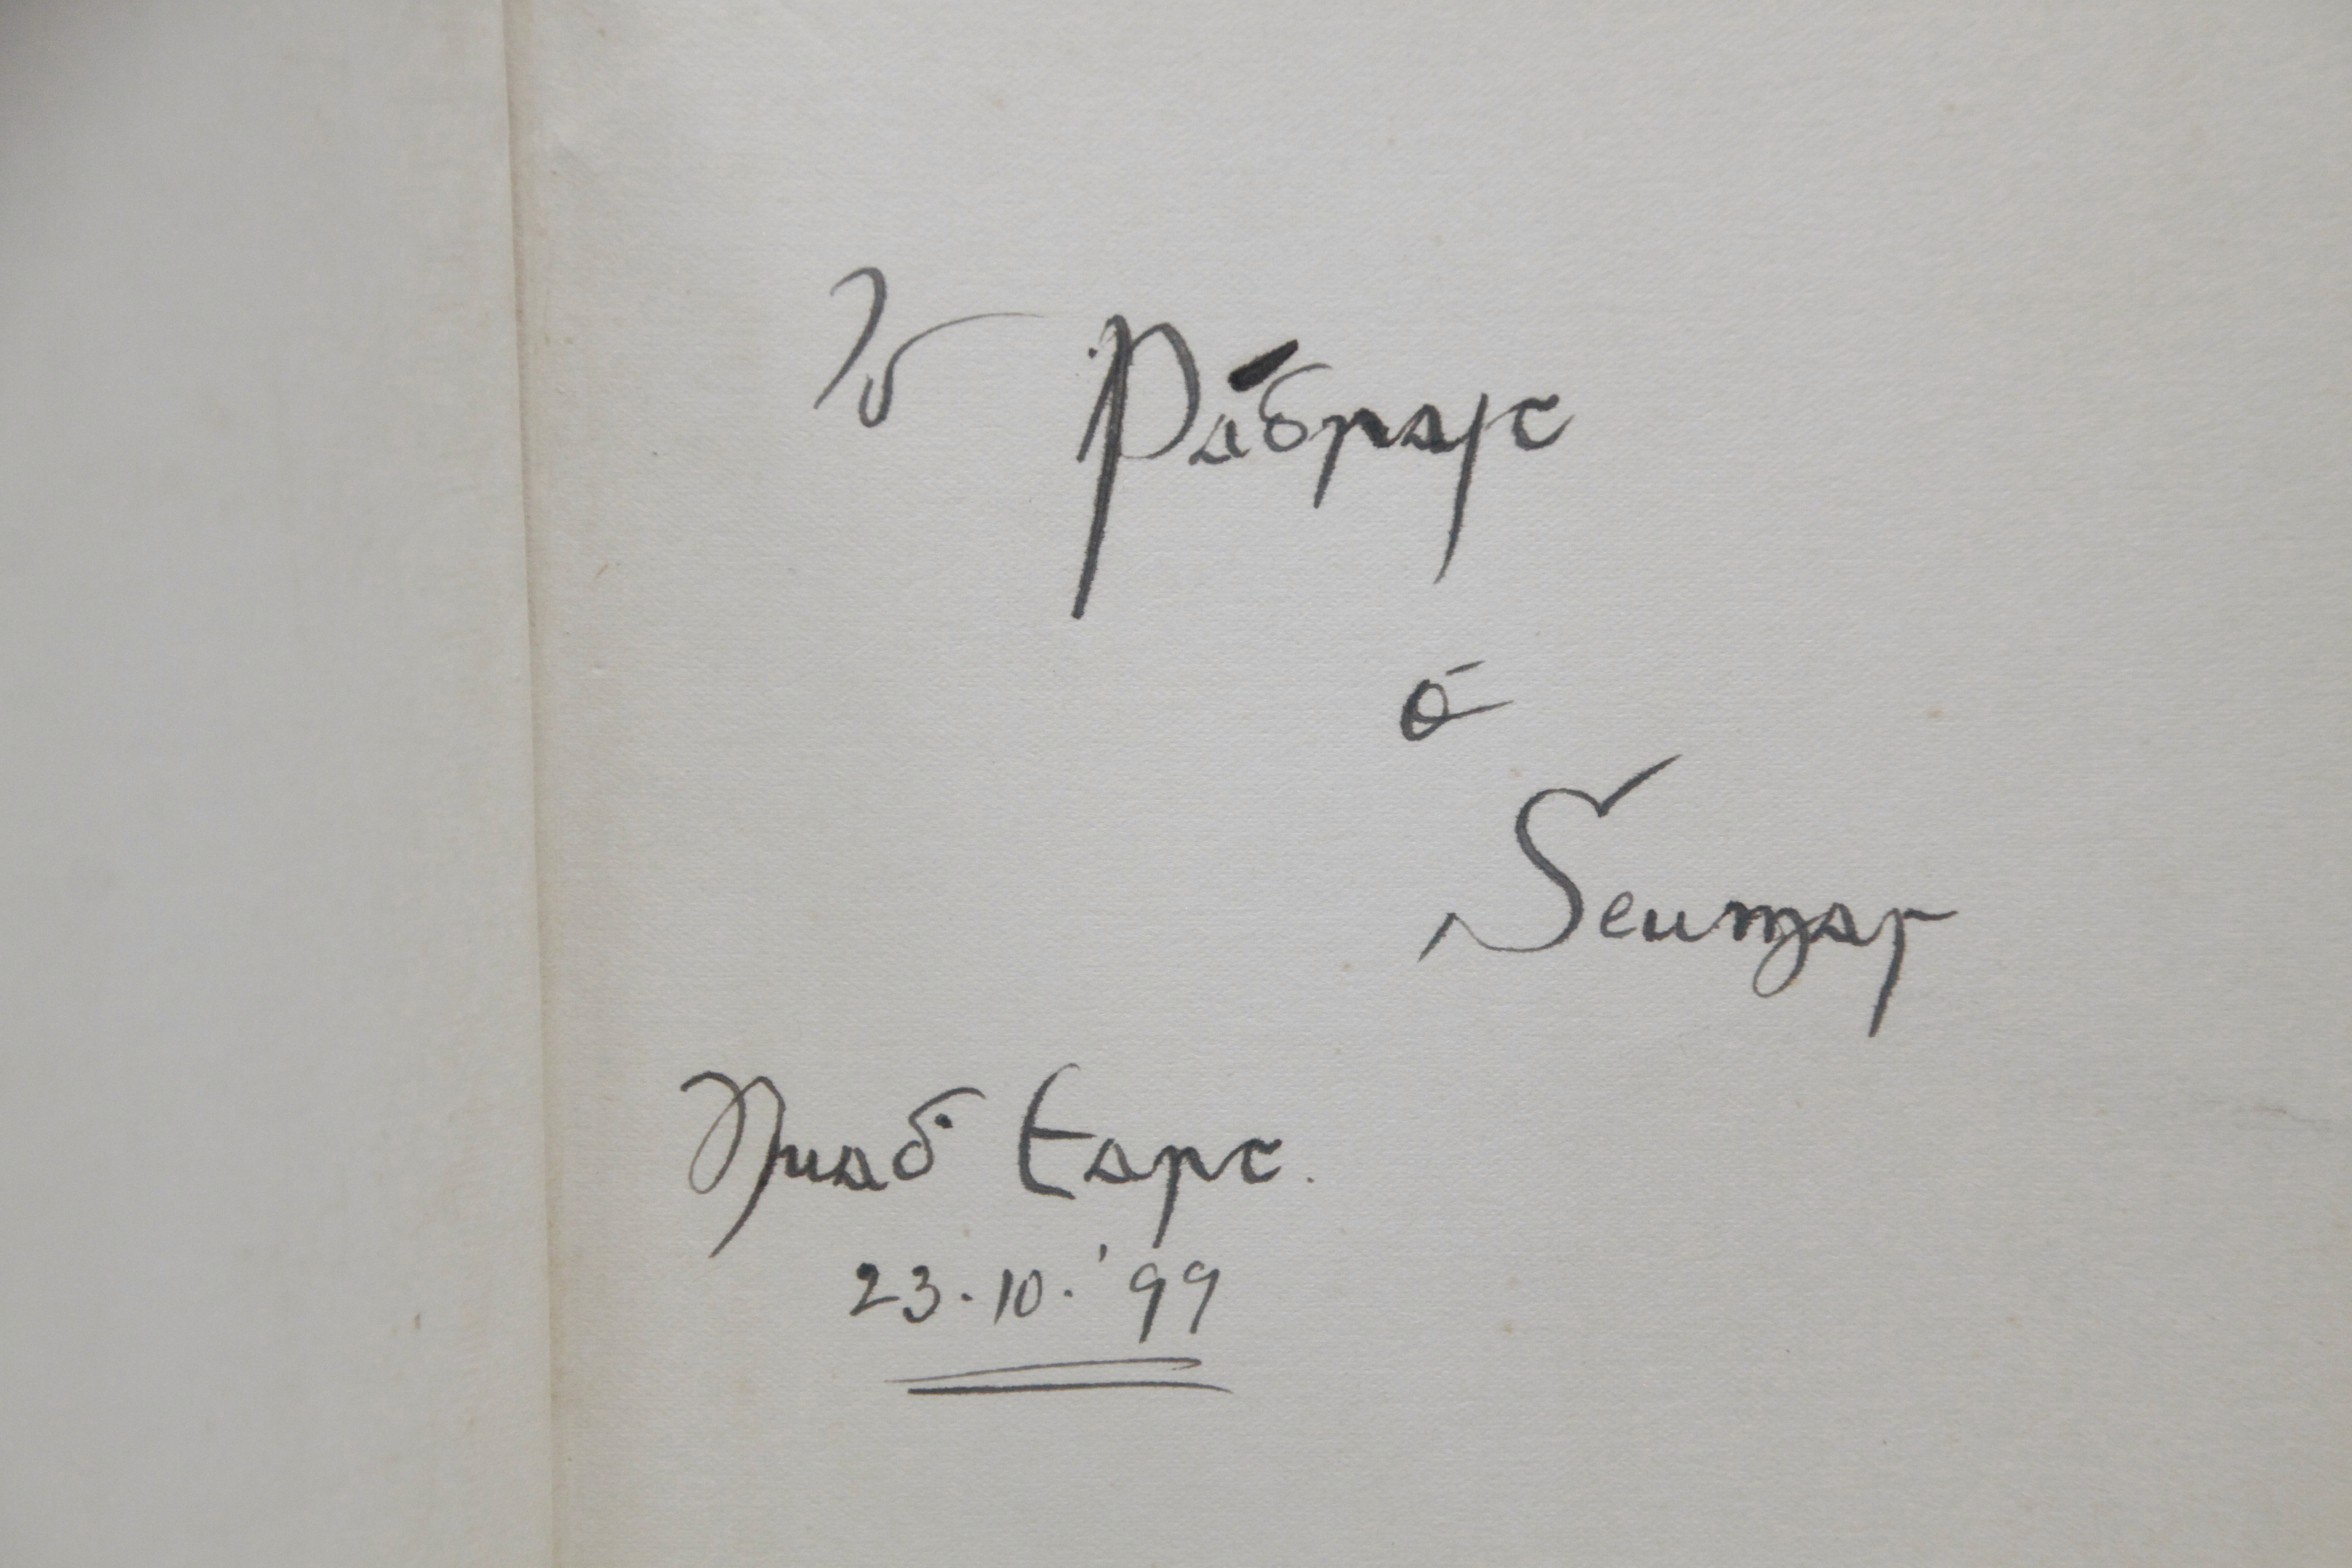 Do Pádraic
ó
Seumas
Nuaḋ Earc.
23.10.'99